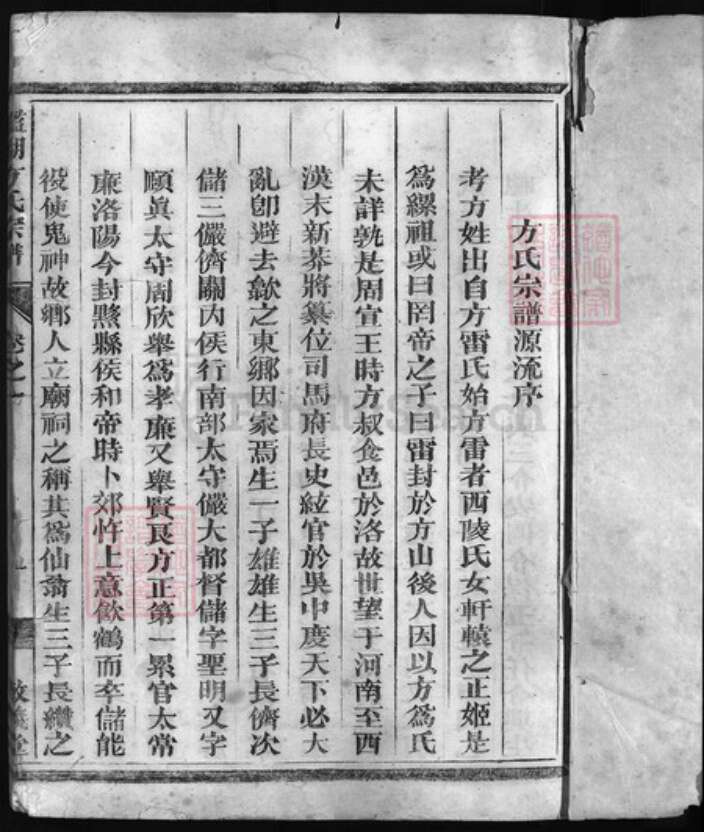 方氏宗譜源流序
考方姓出自方雷氏始方雷者西陵氏女軒轅之正姬是
為縲祖或曰罔帝之子曰雷封於方山後人因以方為氏
未詳孰是周宣王時方叔食邑於洛故世望于河南至西
漢末新莽將纂位司馬府長史紘官於吳中度天下必大
亂卽避去歙之東鄉因家焉生一子雄雄生三子長儕次
儲三儼儕關內侯行南部太守儼大都督儲字聖明又字
頤真太守周欣舉為孝廉又舉賢良方正第一累官太常
廉洛陽令封黟縣侯和帝時卜郊忤上意飲鶴而卒儲能
役使鬼神故鄉人立廟祠之稱其為仙翁生三子長纘之
鑑湖方氏宗譜
卷之一
敘義堂
FamilySearch